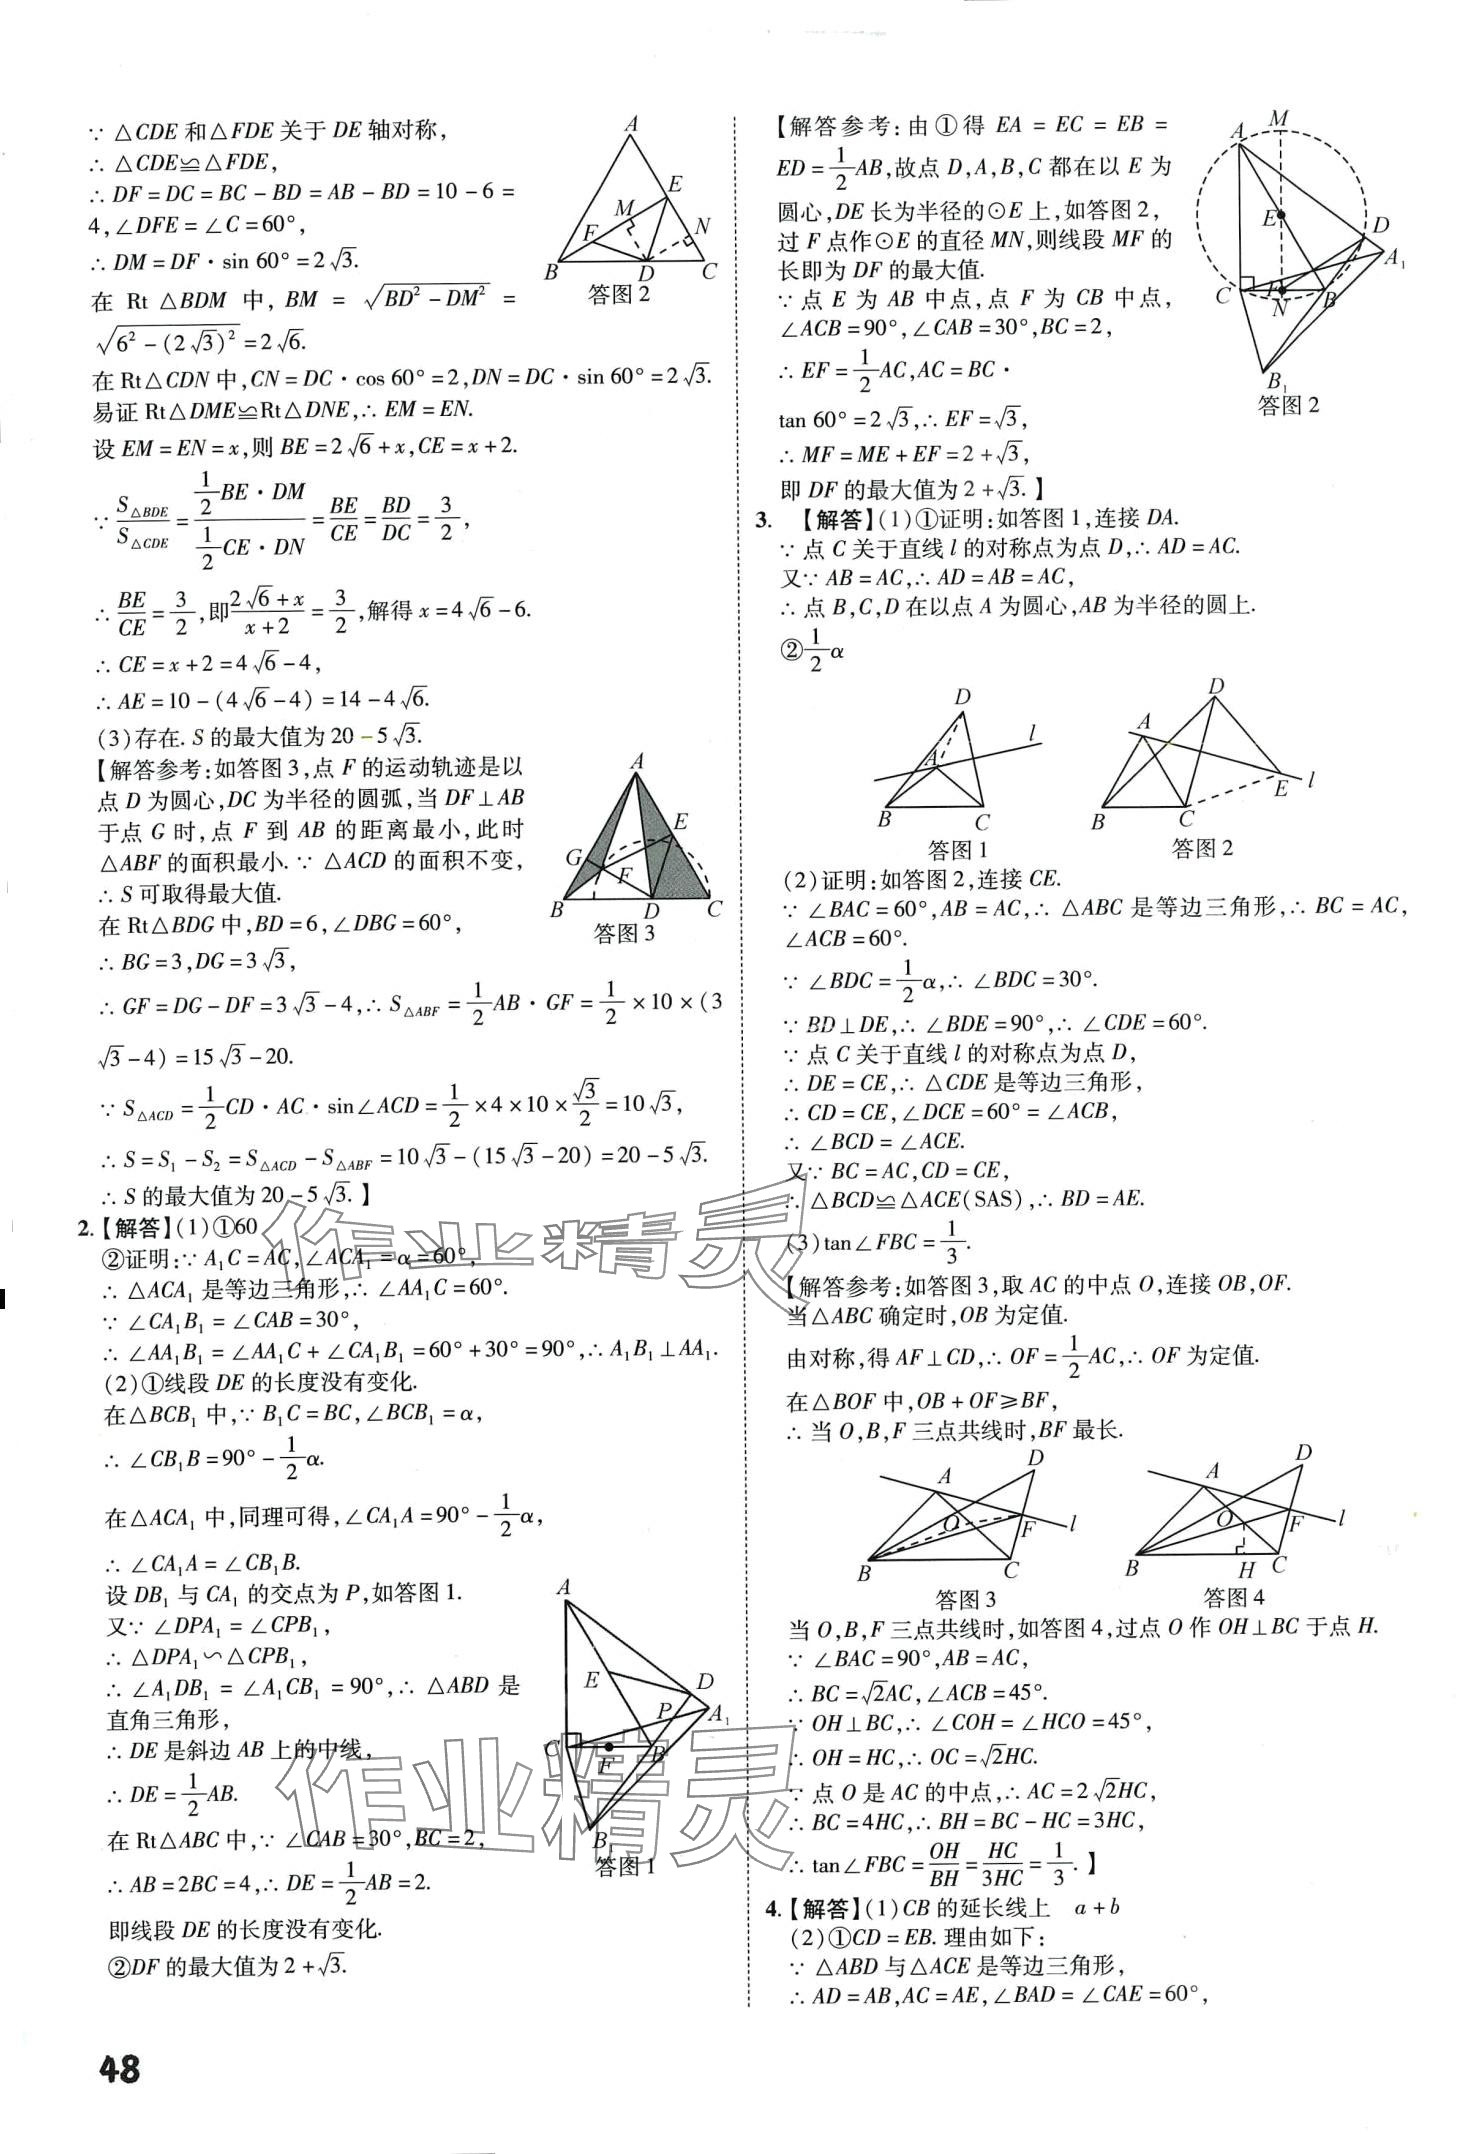 ∵ △CDE 和△FDE 关于 DE 轴对称,
∴ △CDE≌△FDE,
∴ DF = DC = BC - BD = AB - BD = 10 - 6 =
4,∠DFE = ∠C = 60°,
∴ DM = DF · sin 60° = 2√3.
在 Rt △BDM 中, BM = √(BD² - DM²) =
√(6² - (2√3)²) = 2√6.
在 Rt△CDN 中,CN = DC · cos 60° = 2,DN = DC · sin 60° = 2√3.
易证 Rt△DME≌Rt△DNE,∴ EM = EN.
设 EM = EN = x,则 BE = 2√6 + x,CE = x + 2.
∵ S△BDE/S△CDE = (1/2 BE · DM)/(1/2 CE · DN) = BE/CE = BD/DC = 3/2,
∴ BE/CE = 3/2,即 (2√6 + x)/(x + 2) = 3/2,解得 x = 4√6 - 6.
∴ CE = x + 2 = 4√6 - 4,
∴ AE = 10 - (4√6 - 4) = 14 - 4√6.
(3)存在. S 的最大值为 20 - 5√3.
【解答参考:如答图 3,点 F 的运动轨迹是以
点 D 为圆心,DC 为半径的圆弧,当 DF⊥AB
于点 G 时,点 F 到 AB 的距离最小,此时
△ABF 的面积最小. ∵ △ACD 的面积不变,
∴ S 可取得最大值.
在 Rt△BDG 中,BD = 6,∠DBG = 60°,
∴ BG = 3,DG = 3√3,
∴ GF = DG - DF = 3√3 - 4,∴ S△ABF = 1/2 AB · GF = 1/2 × 10 × (3
√3 - 4) = 15√3 - 20.
∵ S△ACD = 1/2 CD · AC · sin∠ACD = 1/2 × 4 × 10 × √3/2 = 10√3,
∴ S = S₁ - S₂ = S△ACD - S△ABF = 10√3 - (15√3 - 20) = 20 - 5√3.
∴ S 的最大值为 20 - 5√3.】
2.【解答】(1)①60
②证明:∵ A₁C = AC,∠ACA₁ = α = 60°,
∴ △ACA₁ 是等边三角形,∴ ∠AA₁C = 60°.
∵ ∠CA₁B₁ = ∠CAB = 30°,
∴ ∠AA₁B₁ = ∠AA₁C + ∠CA₁B₁ = 60° + 30° = 90°,∴ A₁B₁⊥AA₁.
(2)①线段 DE 的长度没有变化.
在△BCB₁ 中,∵ B₁C = BC,∠BCB₁ = α,
∴ ∠CB₁B = 90° - 1/2 α.
在△ACA₁ 中,同理可得,∠CA₁A = 90° - 1/2 α,
∴ ∠CA₁A = ∠CB₁B.
设 DB₁ 与 CA₁ 的交点为 P,如答图 1.
又∵ ∠DPA₁ = ∠CPB₁,
∴ △DPA₁∽△CPB₁,
∴ ∠A₁DB₁ = ∠A₁CB₁ = 90°,∴ △ABD 是
直角三角形,
∴ DE 是斜边 AB 上的中线,
∴ DE = 1/2 AB.
在 Rt△ABC 中,∵ ∠CAB = 30°,BC = 2,
∴ AB = 2BC = 4,∴ DE = 1/2 AB = 2.
即线段 DE 的长度没有变化.
②DF 的最大值为 2 + √3.
A
E
M
F
N
B
D
C
答图 2
A
E
G
F
B
D
C
答图 3
A
E
D
P
A₁
C
F
B
B₁
答图 1
48
【解答参考:由①得 EA = EC = EB =
ED = 1/2 AB,故点 D,A,B,C 都在以 E 为
圆心,DE 长为半径的⊙E 上,如答图 2,
过 F 点作⊙E 的直径 MN,则线段 MF 的
长即为 DF 的最大值.
∵ 点 E 为 AB 中点,点 F 为 CB 中点,
∠ACB = 90°,∠CAB = 30°,BC = 2,
∴ EF = 1/2 AC,AC = BC ·
tan 60° = 2√3,∴ EF = √3,
∴ MF = ME + EF = 2 + √3,
即 DF 的最大值为 2 + √3.】
M
A
E
D
A₁
C
F
N
B
B₁
答图 2
3. 【解答】(1)①证明:如答图 1,连接 DA.
∵ 点 C 关于直线 l 的对称点为点 D,∴ AD = AC.
又∵ AB = AC,∴ AD = AB = AC,
∴ 点 B,C,D 在以点 A 为圆心,AB 为半径的圆上.
②1/2 α
D
l
A
B
C
答图 1
D
A
E
l
B
C
答图 2
(2)证明:如答图 2,连接 CE.
∵ ∠BAC = 60°,AB = AC,∴ △ABC 是等边三角形,∴ BC = AC,
∠ACB = 60°.
∵ ∠BDC = 1/2 α,∴ ∠BDC = 30°.
∵ BD⊥DE,∴ ∠BDE = 90°,∴ ∠CDE = 60°.
∵ 点 C 关于直线 l 的对称点为点 D,
∴ DE = CE,∴ △CDE 是等边三角形,
∴ CD = CE,∠DCE = 60° = ∠ACB,
∴ ∠BCD = ∠ACE.
又∵ BC = AC,CD = CE,
∴ △BCD≌△ACE(SAS),∴ BD = AE.
(3)tan∠FBC = 1/3.
【解答参考:如答图 3,取 AC 的中点 O,连接 OB,OF.
当△ABC 确定时,OB 为定值.
由对称,得 AF⊥CD,∴ OF = 1/2 AC,∴ OF 为定值.
在△BOF 中,OB + OF≥BF,
∴ 当 O,B,F 三点共线时,BF 最长.
D
A
O
F
l
B
C
答图 3
D
A
O
F
l
B
H
C
答图 4
当 O,B,F 三点共线时,如答图 4,过点 O 作 OH⊥BC 于点 H.
∵ ∠BAC = 90°,AB = AC,
∴ BC = √2AC,∠ACB = 45°.
∵ OH⊥BC,∴ ∠COH = ∠HCO = 45°,
∴ OH = HC,∴ OC = √2HC.
∵ 点 O 是 AC 的中点,∴ AC = 2√2HC,
∴ BC = 4HC,∴ BH = BC - HC = 3HC,
∴ tan∠FBC = OH/BH = HC/3HC = 1/3.】
4.【解答】(1)CB 的延长线上 a + b
(2)①CD = EB. 理由如下:
∵ △ABD 与△ACE 是等边三角形,
∴ AD = AB,AC = AE,∠BAD = ∠CAE = 60°,
作业精灵
作业精灵